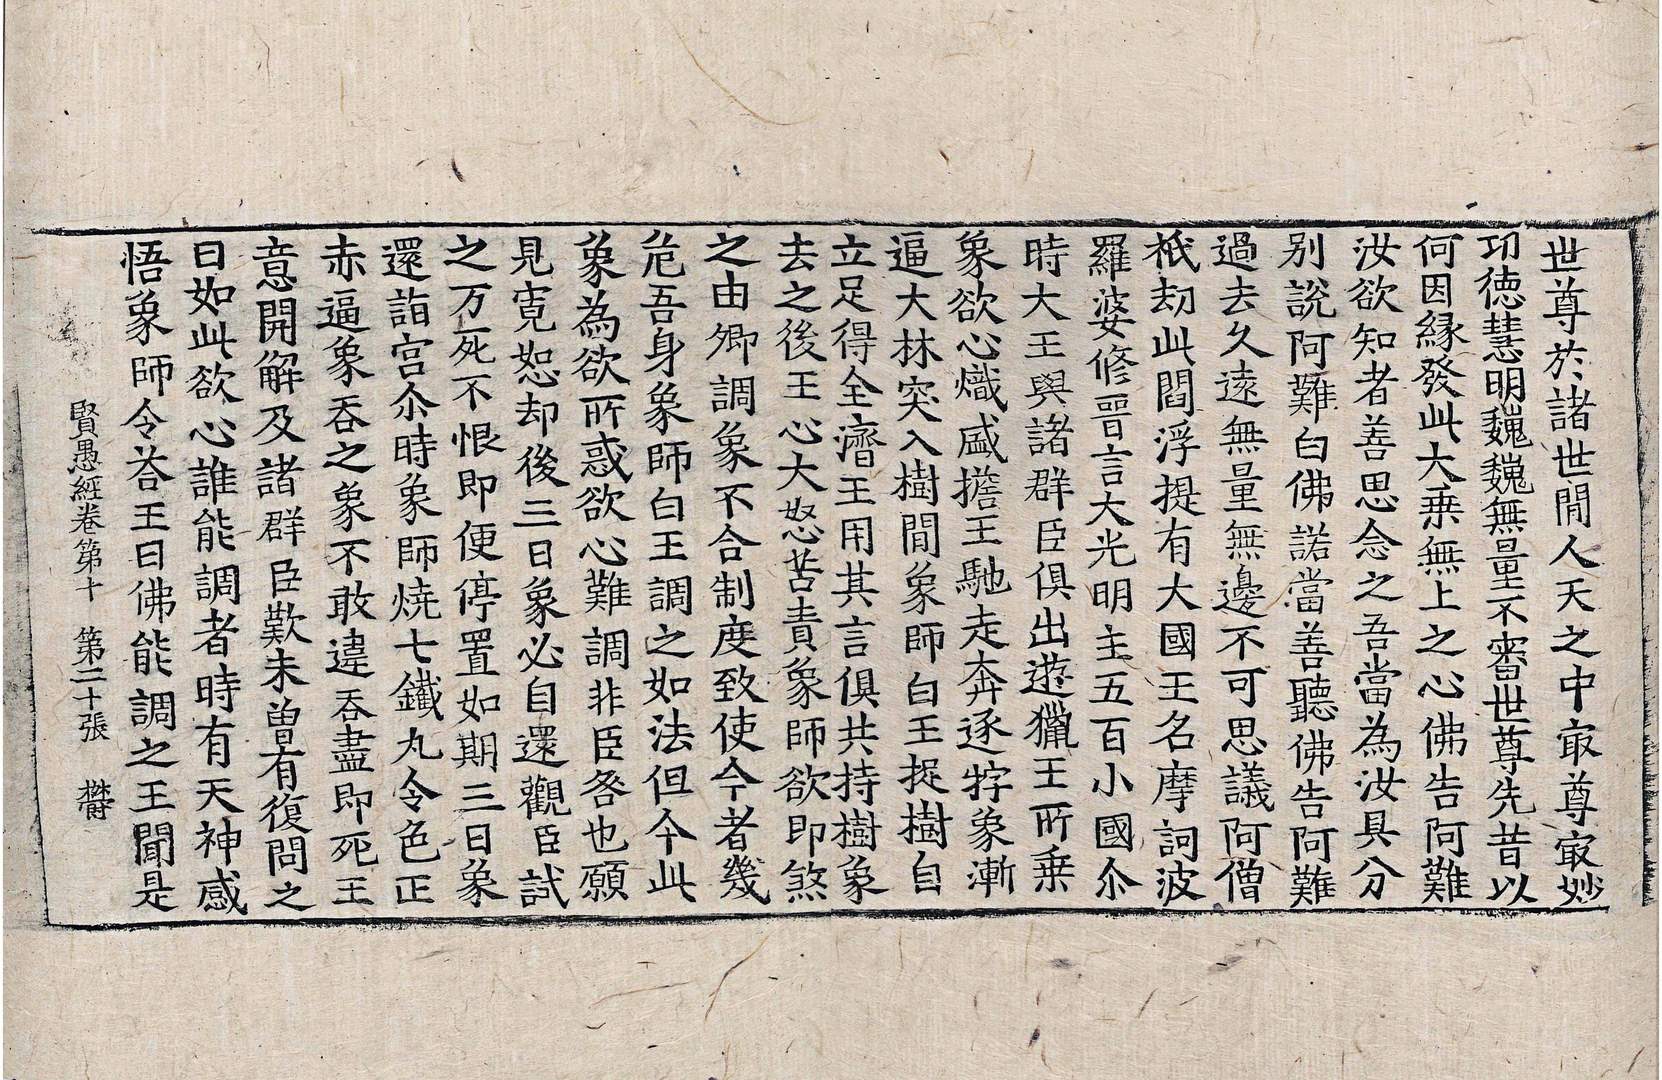 世尊於諸世閒人天之中㝡尊㝡妙
功德慧明巍巍無量不審世尊先昔以
何因緣發此大乘無上之心佛告阿難
汝欲知者善思念之吾當為汝具分
别說阿難白佛諾當善聽佛告阿難
過去久遠無量無邊不可思議阿僧
祇劫此閻浮提有大國王名摩訶波
羅婆修晉言大光明主五百小國尒
時大王與諸群臣俱出遊獵王所乘
象欲心熾盛擔王馳走奔逐牸象漸
逼大林突入樹間象師白王捉樹自
立足得全濟王用其言俱共持樹象
去之後王心大怒苦責象師欲即煞
之由卿調象不合制度致使今者幾
危吾身象師白王調之如法但今此
象為欲所惑欲心難調非臣咎也願
見寬恕却後三日象必自還觀臣試
之万死不恨即便停置如期三日象
還詣宮尒時象師燒七鐵丸令色正
赤逼象吞之象不敢違吞盡即死王
意開解及諸群臣歎未曾有復問之
曰如此欲心誰能調者時有天神感
悟象師令荅王曰佛能調之王聞是
賢愚經卷第十 第二十張 欝